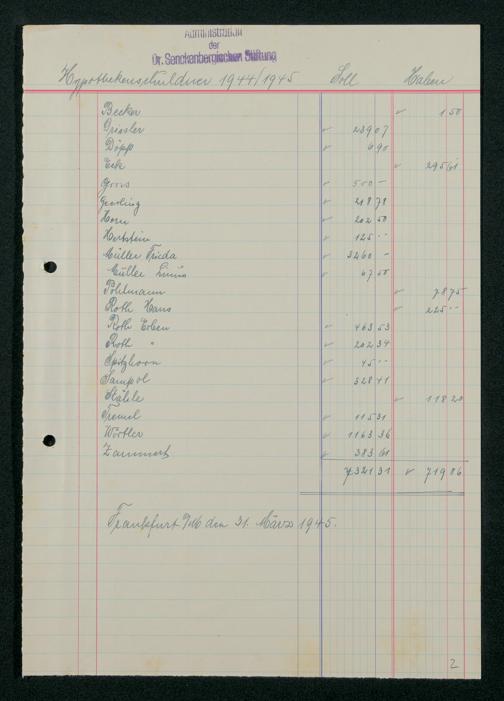 Administration
der
Dr. Senckenbergischen Stiftung
Hypothekenschuldner 1944/1945 Soll Haben
Becker 1 50
Driesler 239 07
Döpp 6 90
Eck 295 61
500 -
Gerling 218 78
Horn 202 50
Hertstein 125 --
Müller Frieda 3260 -
Müller 67 50
Pohlmann 78 75
Roth Hans 225 --
Roth Erben 463 53
Roth " 202 34
Spitzhorn 45 --
328 41
Stähle 118 20
115 31
Wörtler 1163 36
Zammert 383 61
7321 31 719 06
Frankfurt a/M den 31. März 1945.
2